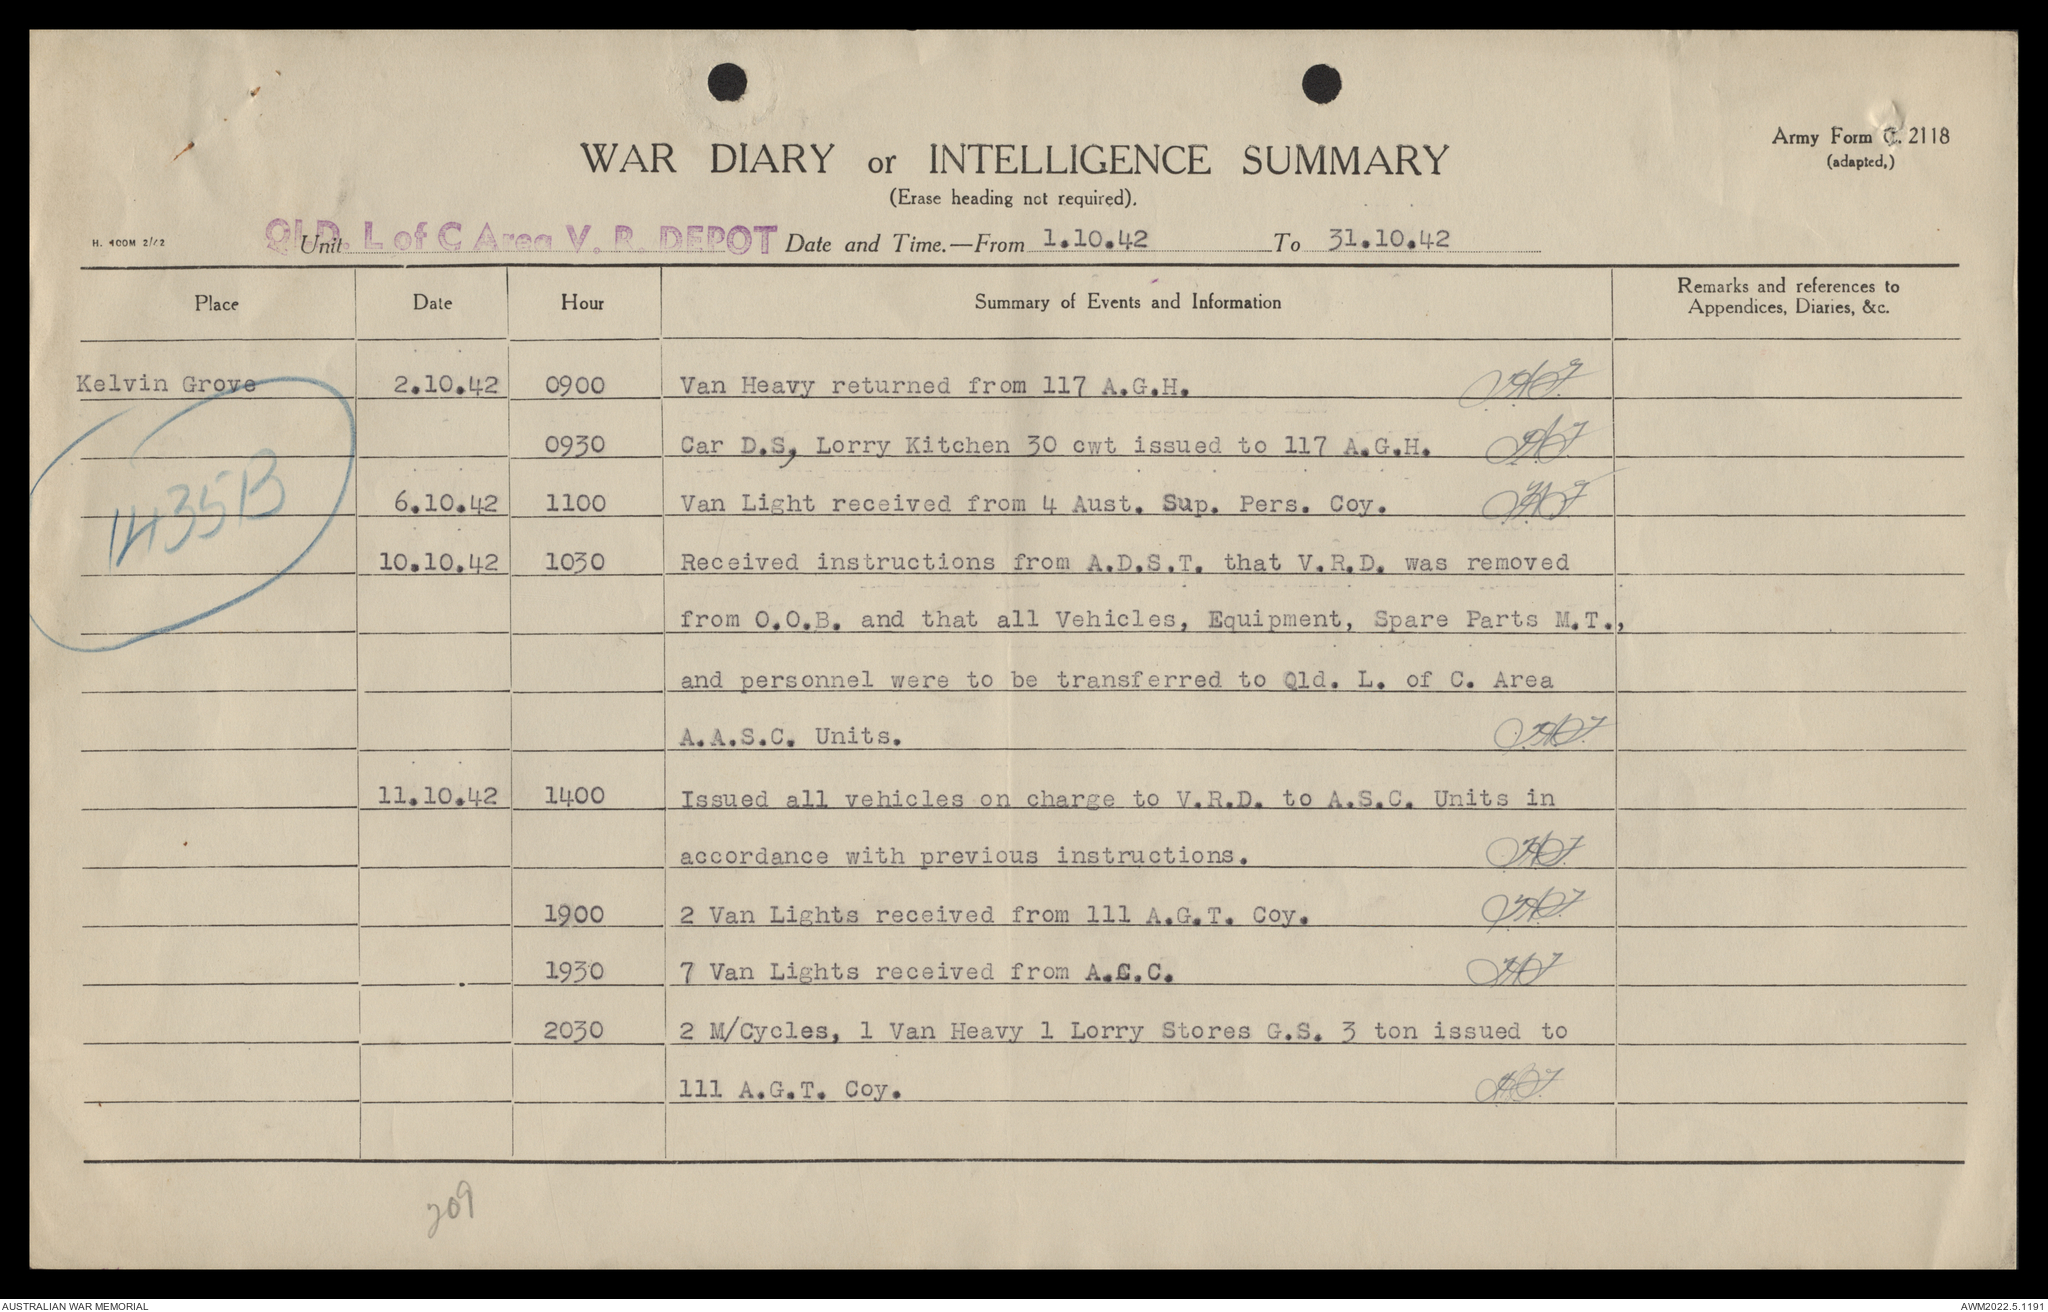 Army Form C. 2118
(adapted,)
WAR DIARY or INTELLIGENCE SUMMARY
(Erase heading not required).
H. 400M 2/42
Unit QLD. L of C Area V. R. DEPOT Date and Time.—From 1.10.42 To 31.10.42
Place Date Hour Summary of Events and Information Remarks and references to
Appendices, Diaries, &c.
Kelvin Grove 2.10.42 0900 Van Heavy returned from 117 A.G.H.
0930 Car D.S, Lorry Kitchen 30 cwt issued to 117 A.G.H.
1435B
6.10.42 1100 Van Light received from 4 Aust. Sup. Pers. Coy.
10.10.42 1030 Received instructions from A.D.S.T. that V.R.D. was removed
from O.O.B. and that all Vehicles, Equipment, Spare Parts M.T.,
and personnel were to be transferred to Qld. L. of C. Area
A.A.S.C. Units.
11.10.42 1400 Issued all vehicles on charge to V.R.D. to A.S.C. Units in
accordance with previous instructions.
1900 2 Van Lights received from 111 A.G.T. Coy.
1930 7 Van Lights received from
2030 2 M/Cycles, 1 Van Heavy 1 Lorry Stores G.S. 3 ton issued to
111 A.G.T. Coy.
209
AUSTRALIAN WAR MEMORIAL
AWM2022.5.1191